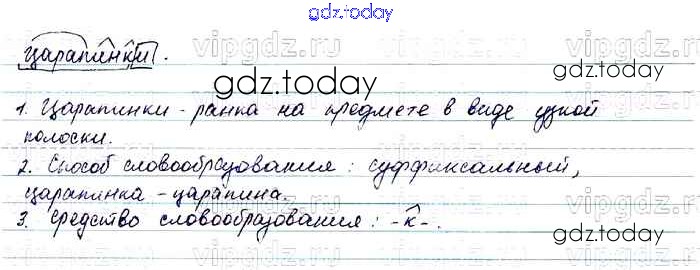 gdz.today
царапинки.
gdz.today
gdz.today
1. Царапинки - ранка на предмете в виде узкой
полоски.
2. Способ словообразования: суффиксальный,
царапинка - царапина.
3. Средство словообразования: -к-.
gdz.today
gdz.today
vipgdz.ru
vipgdz.ru
vipgdz.ru